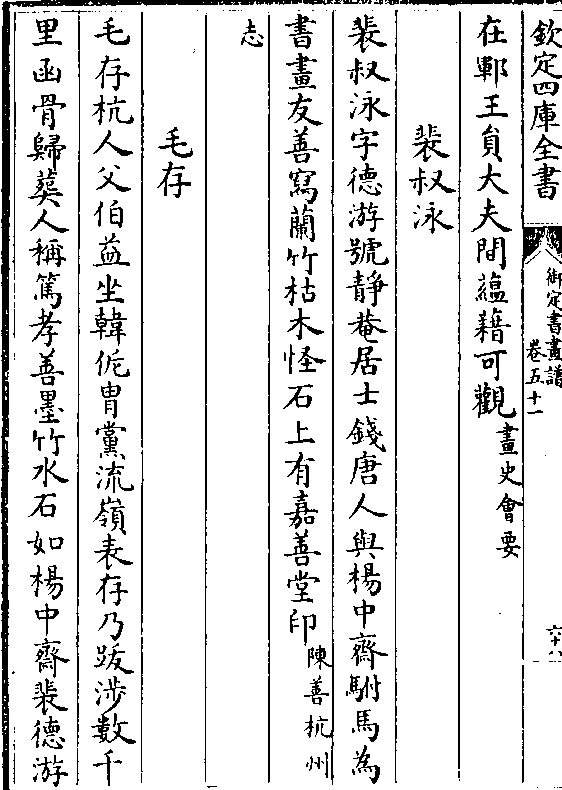 欽定四庫全書
御定書畫譜
卷五十一
在鄆王貟大夫間藴藉可觀畫史會要
裴叔泳
裴叔泳字德游號静菴居士錢唐人與楊中齋駙馬為
書畫友善寫蘭竹枯木怪石上有嘉善堂印陳善杭州
志
毛存
毛存杭人父伯益坐韓侂胄黨流嶺表存乃跋涉數千
里函骨歸葬人稱篤孝善墨竹水石如楊中齋裴德游